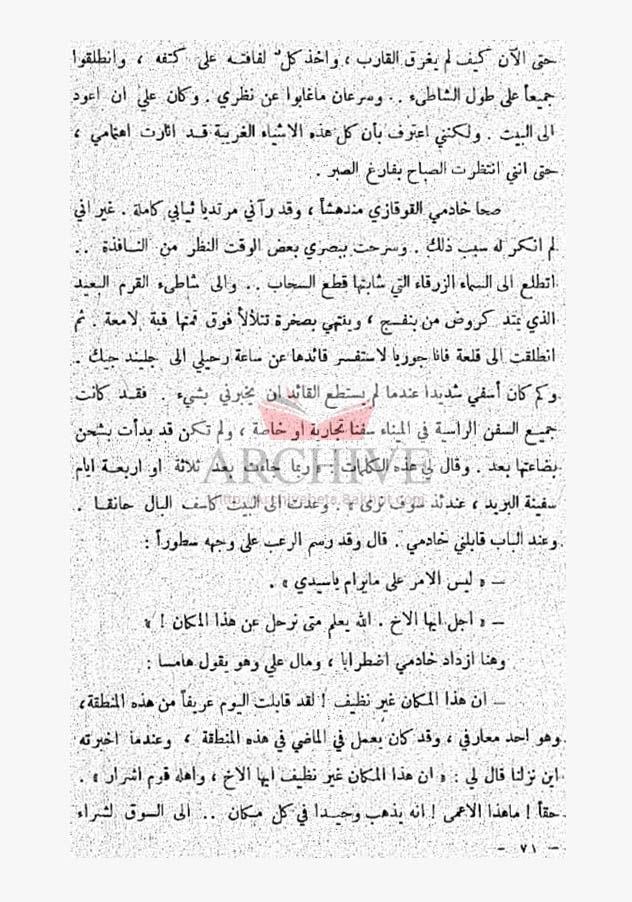 حتى الآن كيف لم يغرق القارب ، واخذ كل لفافته على كتفه ، وانطلقوا
جميعاً على طول الشاطىء .. وسرعان ماغابوا عن نظري . وكان علي ان اعود
الى البيت . ولكنني اعترف بأن كل هذه الاشياء الغريبة قد اثارت اهتمامي ،
حتى انني انتظرت الصباح بفارغ الصبر .
صحا خادمي القوقازي مندهشاً ، وقد رآني مرتديا ثيابي كاملة . غير اني
لم اذكر له سبب ذلك . وسرحت ببصري بعض الوقت النظر من النافذة ..
اتطلع الى السماء الزرقاء التي شابتها قطع السحاب .. والى شاطىء القرم البعيد
الذي يمتد كروض من بنفسج ، وينتهي بصخرة تتلألأ فوق قمتها قبة لامعة . ثم
انطلقت الى قلعة فانا جوريا لاستفسر قائدها عن ساعة رحيلي الى جلیند جيك .
وكم كان أسفي شديدا عندما لم يستطع القائد ان يخبرني بشيء . فقد كانت
جميع السفن الراسية في الميناء سفنا تجارية او خاصة ، ولم تكن قد بدأت بشحن
بضاعتها بعد . وقال لي هذه الكلمات : « ربما جاءت بعد ثلاثة او اربعة ايام
سفينة البريد ، عندئذ سوف نرى » . وعدت الى البيت كاسف البال حانقا .
وعند الباب قابلني خادمي . قال وقد رسم الرعب على وجهه سطوراً :
– « ليس الامر على مايرام ياسيدي » .
– « اجل ايها الاخ . الله يعلم متى نرحل عن هذا المكان ! »
وهنا ازداد خادمي اضطرابا ، ومال علي وهو يقول هامسا :
– ان هذا المكان غير نظيف ! لقد قابلت اليوم عريفاً من هذه المنطقة ،
وهو احد معارفي ، وقد كان يعمل في الماضي في هذه المنطقة ، وعندما اخبرته
اين نزلنا قال لي : « ان هذا المكان غير نظيف ايها الاخ ، واهله قوم اشرار » .
حقاً ! ماهذا الاعمى ! انه يذهب وحيدا في كل مكان .. الى السوق لشراء
– ٧١ –
ARCHIVE
http://Archivebeta.Sakhrit.com